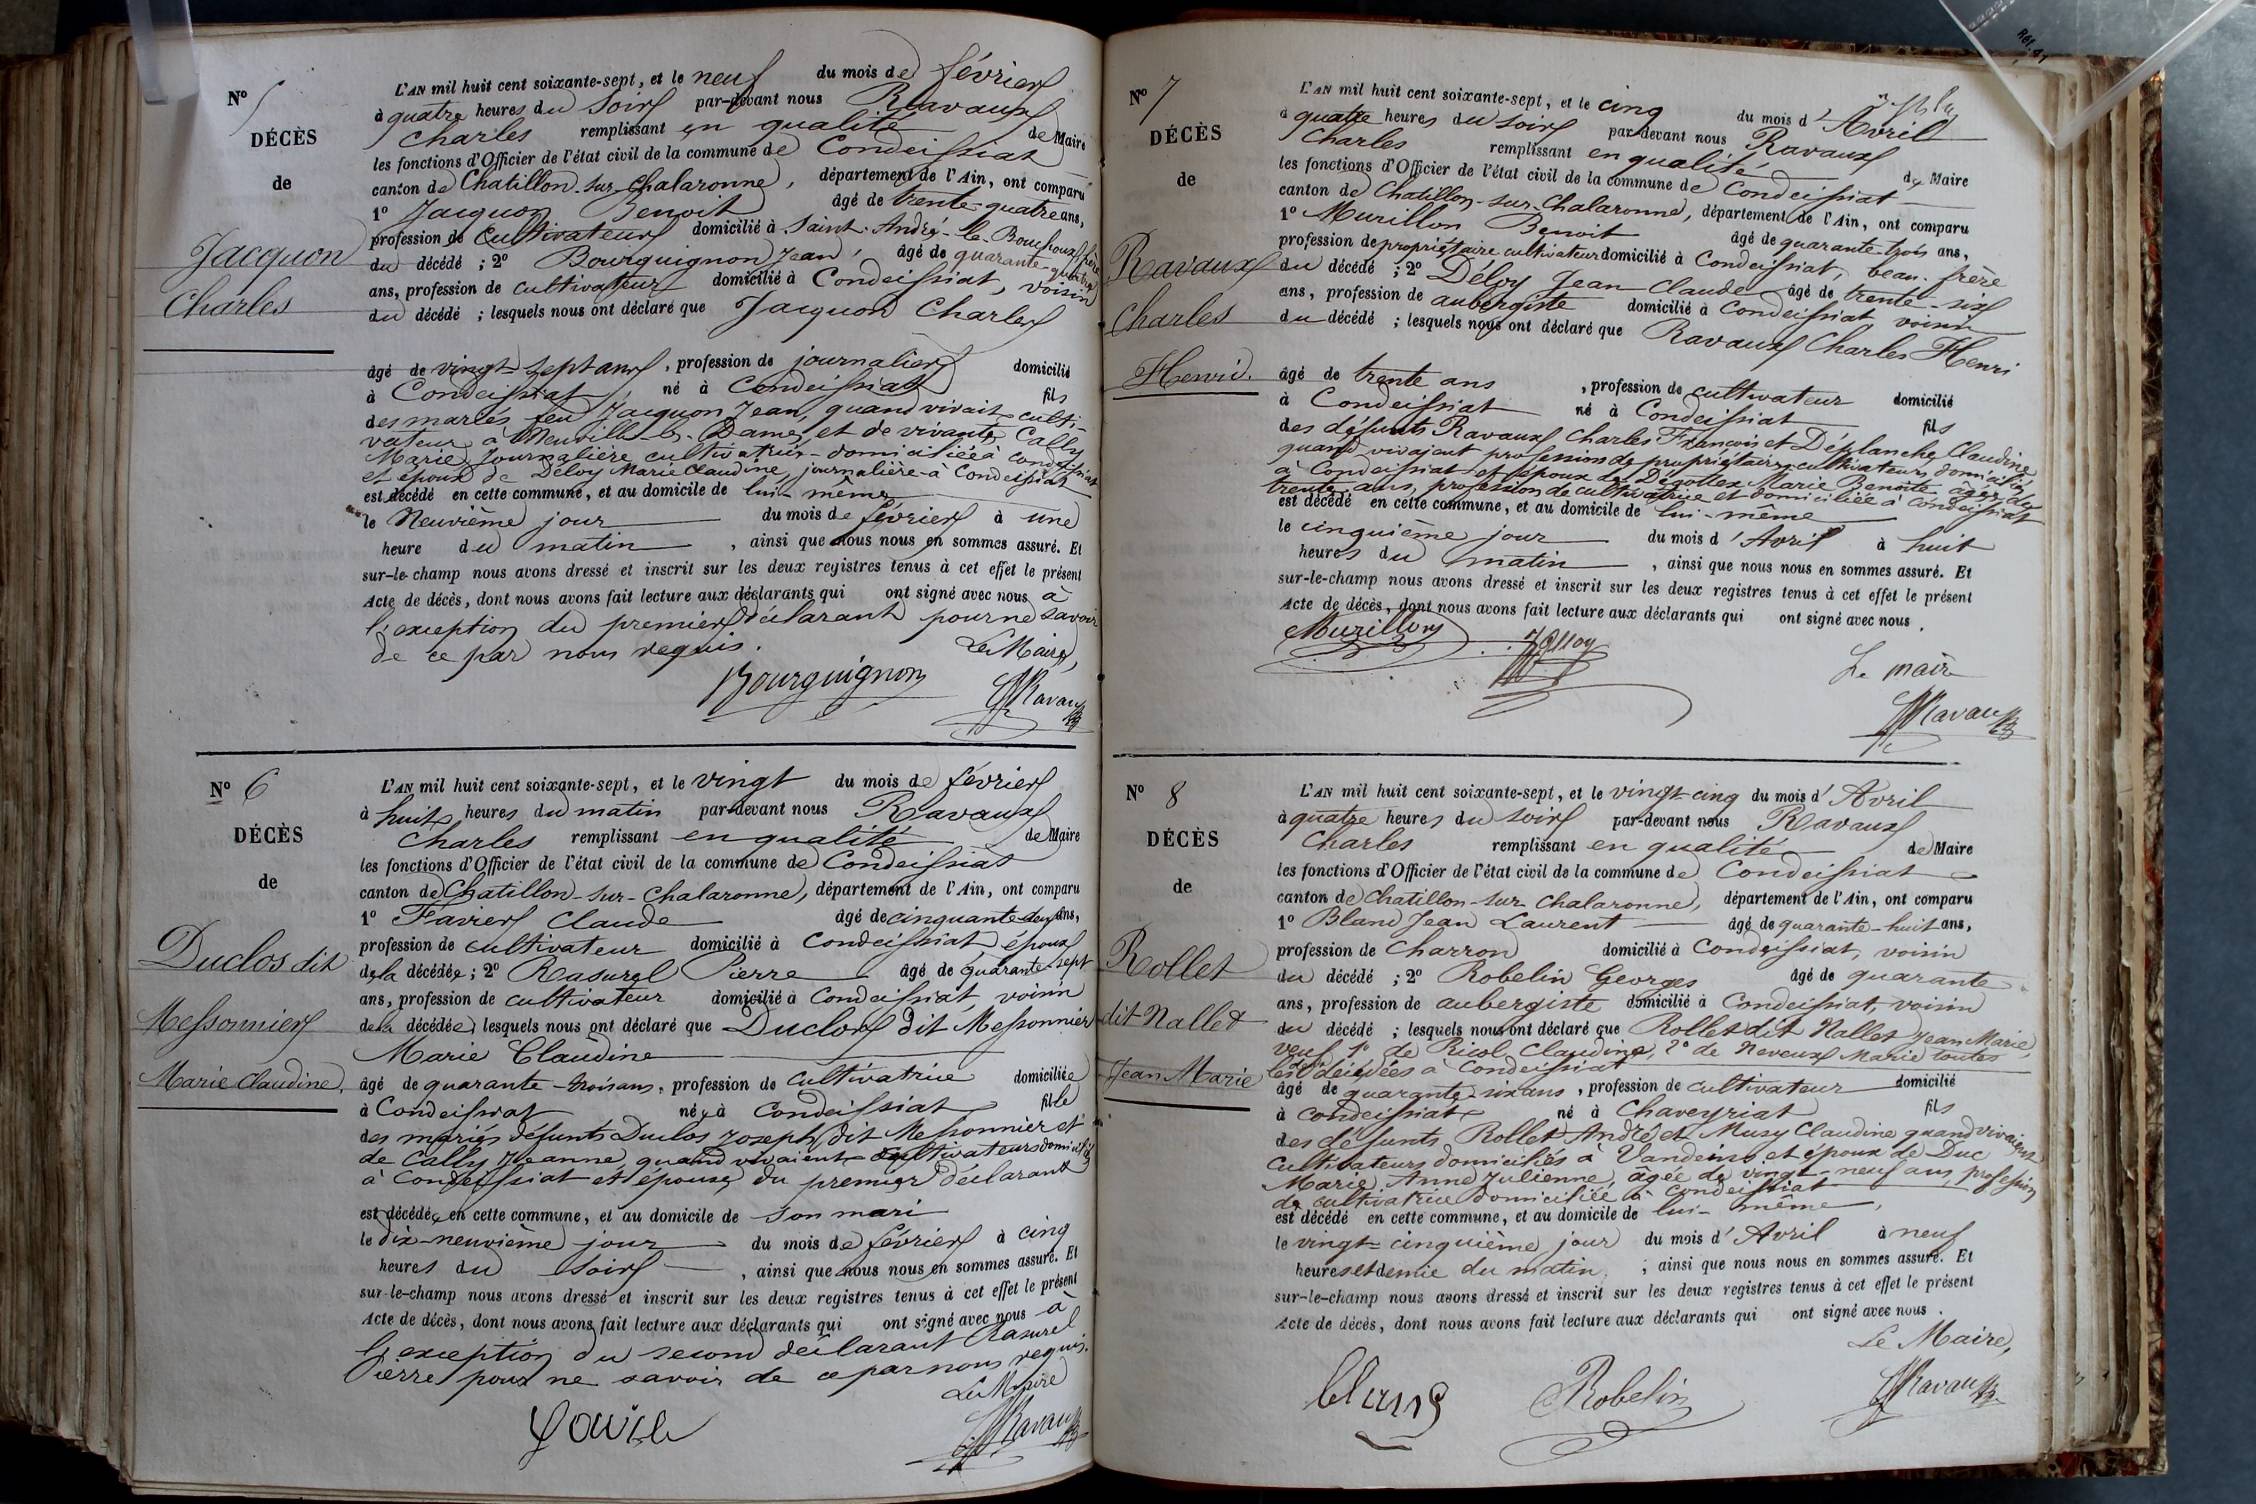 N° 5
DÉCÈS
de
Jacquon
Charles
L'AN mil huit cent soixante-sept, et le neuf du mois de février
à quatre heures du soir par-devant nous Ravaux
Charles remplissant en qualité de Maire
les fonctions d'Officier de l'état civil de la commune de Condeissiat
canton de Chatillon-sur-Chalaronne, département de l'Ain, ont comparu
1° Jacquon Benoit âgé de trente-quatre ans,
profession de cultivateur domicilié à Saint-André-le-Bouchoux, frère
du décédé ; 2° Bourguignon Jean âgé de quarante-quatre
ans, profession de cultivateur domicilié à Condeissiat, voisin
du décédé ; lesquels nous ont déclaré que Jacquon Charles
âgé de vingt-sept ans, profession de journalier domicilié
à Condeissiat, né à Condeissiat fils
des mariés feu Jacquon Jean, quand vivait culti-
vateur à Neuville-les-Dames, et de vivante Cally
Marie, journalière cultivatrice domiciliée à Condeissiat
et époux de Déloy Marie Claudine, journalière à Condeissiat
est décédé en cette commune, et au domicile de lui-même
le Neuvième jour du mois de février à une
heure du matin, ainsi que nous nous en sommes assuré. Et
sur-le-champ nous avons dressé et inscrit sur les deux registres tenus à cet effet le présent
Acte de décès, dont nous avons fait lecture aux déclarants qui ont signé avec nous à
l'exception du premier déclarant pour ne savoir
de ce par nous requis.
Le Maire,
Bourguignon
Ravaux
N° 6
DÉCÈS
de
Duclos dit
Messonnier
Marie Claudine.
L'AN mil huit cent soixante-sept, et le vingt du mois de février
à huit heures du matin par-devant nous Ravaux
Charles remplissant en qualité de Maire
les fonctions d'Officier de l'état civil de la commune de Condeissiat
canton de Chatillon-sur-Chalaronne, département de l'Ain, ont comparu
1° Favier Claude âgé de cinquante-deux ans,
profession de cultivateur domicilié à Condeissiat époux
de la décédée ; 2° Rasurel Pierre âgé de quarante-sept
ans, profession de cultivateur domicilié à Condeissiat, voisin
de la décédée, lesquels nous ont déclaré que Duclos dit Messonnier
Marie Claudine
âgé de quarante-trois ans, profession de cultivatrice domiciliée
à Condeissiat née à Condeissiat fille
des mariés défunts Duclos Joseph dit Messonnier et
de Cally Jeanne quand vivaient cultivateurs domiciliés
à Condeissiat et épouse du premier déclarant
est décédée en cette commune, et au domicile de son mari
le dix-neuvième jour du mois de février à cinq
heures du soir, ainsi que nous nous en sommes assuré. Et
sur-le-champ nous avons dressé et inscrit sur les deux registres tenus à cet effet le présent
Acte de décès, dont nous avons fait lecture aux déclarants qui ont signé avec nous à
l'exception du second déclarant Rasurel
Pierre pour ne savoir de ce par nous requis.
Le Maire
Ravaux
N° 7
DÉCÈS
de
Ravaux
Charles
Henri.
L'AN mil huit cent soixante-sept, et le cinq du mois d'Avril
à quatre heures du soir par-devant nous Ravaux
Charles remplissant en qualité de Maire
les fonctions d'Officier de l'état civil de la commune de Condeissiat
canton de Chatillon-sur-Chalaronne, département de l'Ain, ont comparu
1° Murillon Benoit âgé de quarante-trois ans,
profession de propriétaire cultivateur domicilié à Condeissiat, beau-frère
du décédé ; 2° Déloy Jean Claude âgé de trente-six
ans, profession de aubergiste domicilié à Condeissiat voisin
du décédé ; lesquels nous ont déclaré que Ravaux Charles Henri
âgé de trente ans, profession de cultivateur domicilié
à Condeissiat né à Condeissiat fils
des défunts Ravaux Charles François et Déplanche Claudine
quand vivaient profession de propriétaires-cultivateurs domiciliés
à Condeissiat et époux de Dégottex Marie Benoite âgée de
trente ans, profession de cultivatrice et domiciliée à Condeissiat
est décédé en cette commune, et au domicile de lui-même
le cinquième jour du mois d'Avril à huit
heures du matin, ainsi que nous nous en sommes assuré. Et
sur-le-champ nous avons dressé et inscrit sur les deux registres tenus à cet effet le présent
Acte de décès, dont nous avons fait lecture aux déclarants qui ont signé avec nous.
Murillon
Le maire
Ravaux
N° 8
DÉCÈS
de
Rollet
dit Nallet
Jean Marie
L'AN mil huit cent soixante-sept, et le vingt-cinq du mois d'Avril
à quatre heures du soir par-devant nous Ravaux
Charles remplissant en qualité de Maire
les fonctions d'Officier de l'état civil de la commune de Condeissiat
canton de Chatillon-sur-Chalaronne, département de l'Ain, ont comparu
1° Blanc Jean Laurent âgé de quarante-huit ans,
profession de Charron domicilié à Condeissiat, voisin
du décédé ; 2° Robelin Georges âgé de quarante
ans, profession de aubergiste domicilié à Condeissiat, voisin
du décédé ; lesquels nous ont déclaré que Rollet dit Nallet Jean Marie,
veuf 1° de Ricol Claudine, 2° de Neveux Marie toutes
les décédées à Condeissiat
âgé de quarante six ans, profession de cultivateur domicilié
à Condeissiat né à Chaveyriat fils
des défunts Rollet André et Musy Claudine quand vivaient
cultivateurs domiciliés à Vandeins et époux de Duc
Marie Anne Julienne, âgée de vingt-neuf ans, profession
de cultivatrice domiciliée à Condeissiat
est décédé en cette commune, et au domicile de lui-même,
le vingt-cinquième jour du mois d'Avril à neuf
heures et demie du matin ; ainsi que nous nous en sommes assuré. Et
sur-le-champ nous avons dressé et inscrit sur les deux registres tenus à cet effet le présent
Acte de décès, dont nous avons fait lecture aux déclarants qui ont signé avec nous.
Le Maire,
Blanc
Robelin
Ravaux